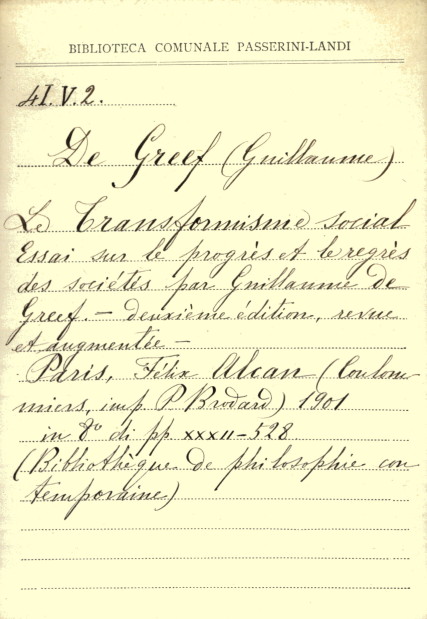 BIBLIOTECA COMUNALE PASSERINI-LANDI
4I.V.2.
De Greef (Guillaume)
Le Transformisme social
Essai sur le progrès et le regrès
des sociétés par Guillaume de
Greef. - deuxième édition, revue
et augmentée -
Paris, Félix Alcan (Coulom
miers, imp. P Brodard) 1901
in 8º di pp XXXII-528
(Bibliothèque de philosophie con
temporaine)